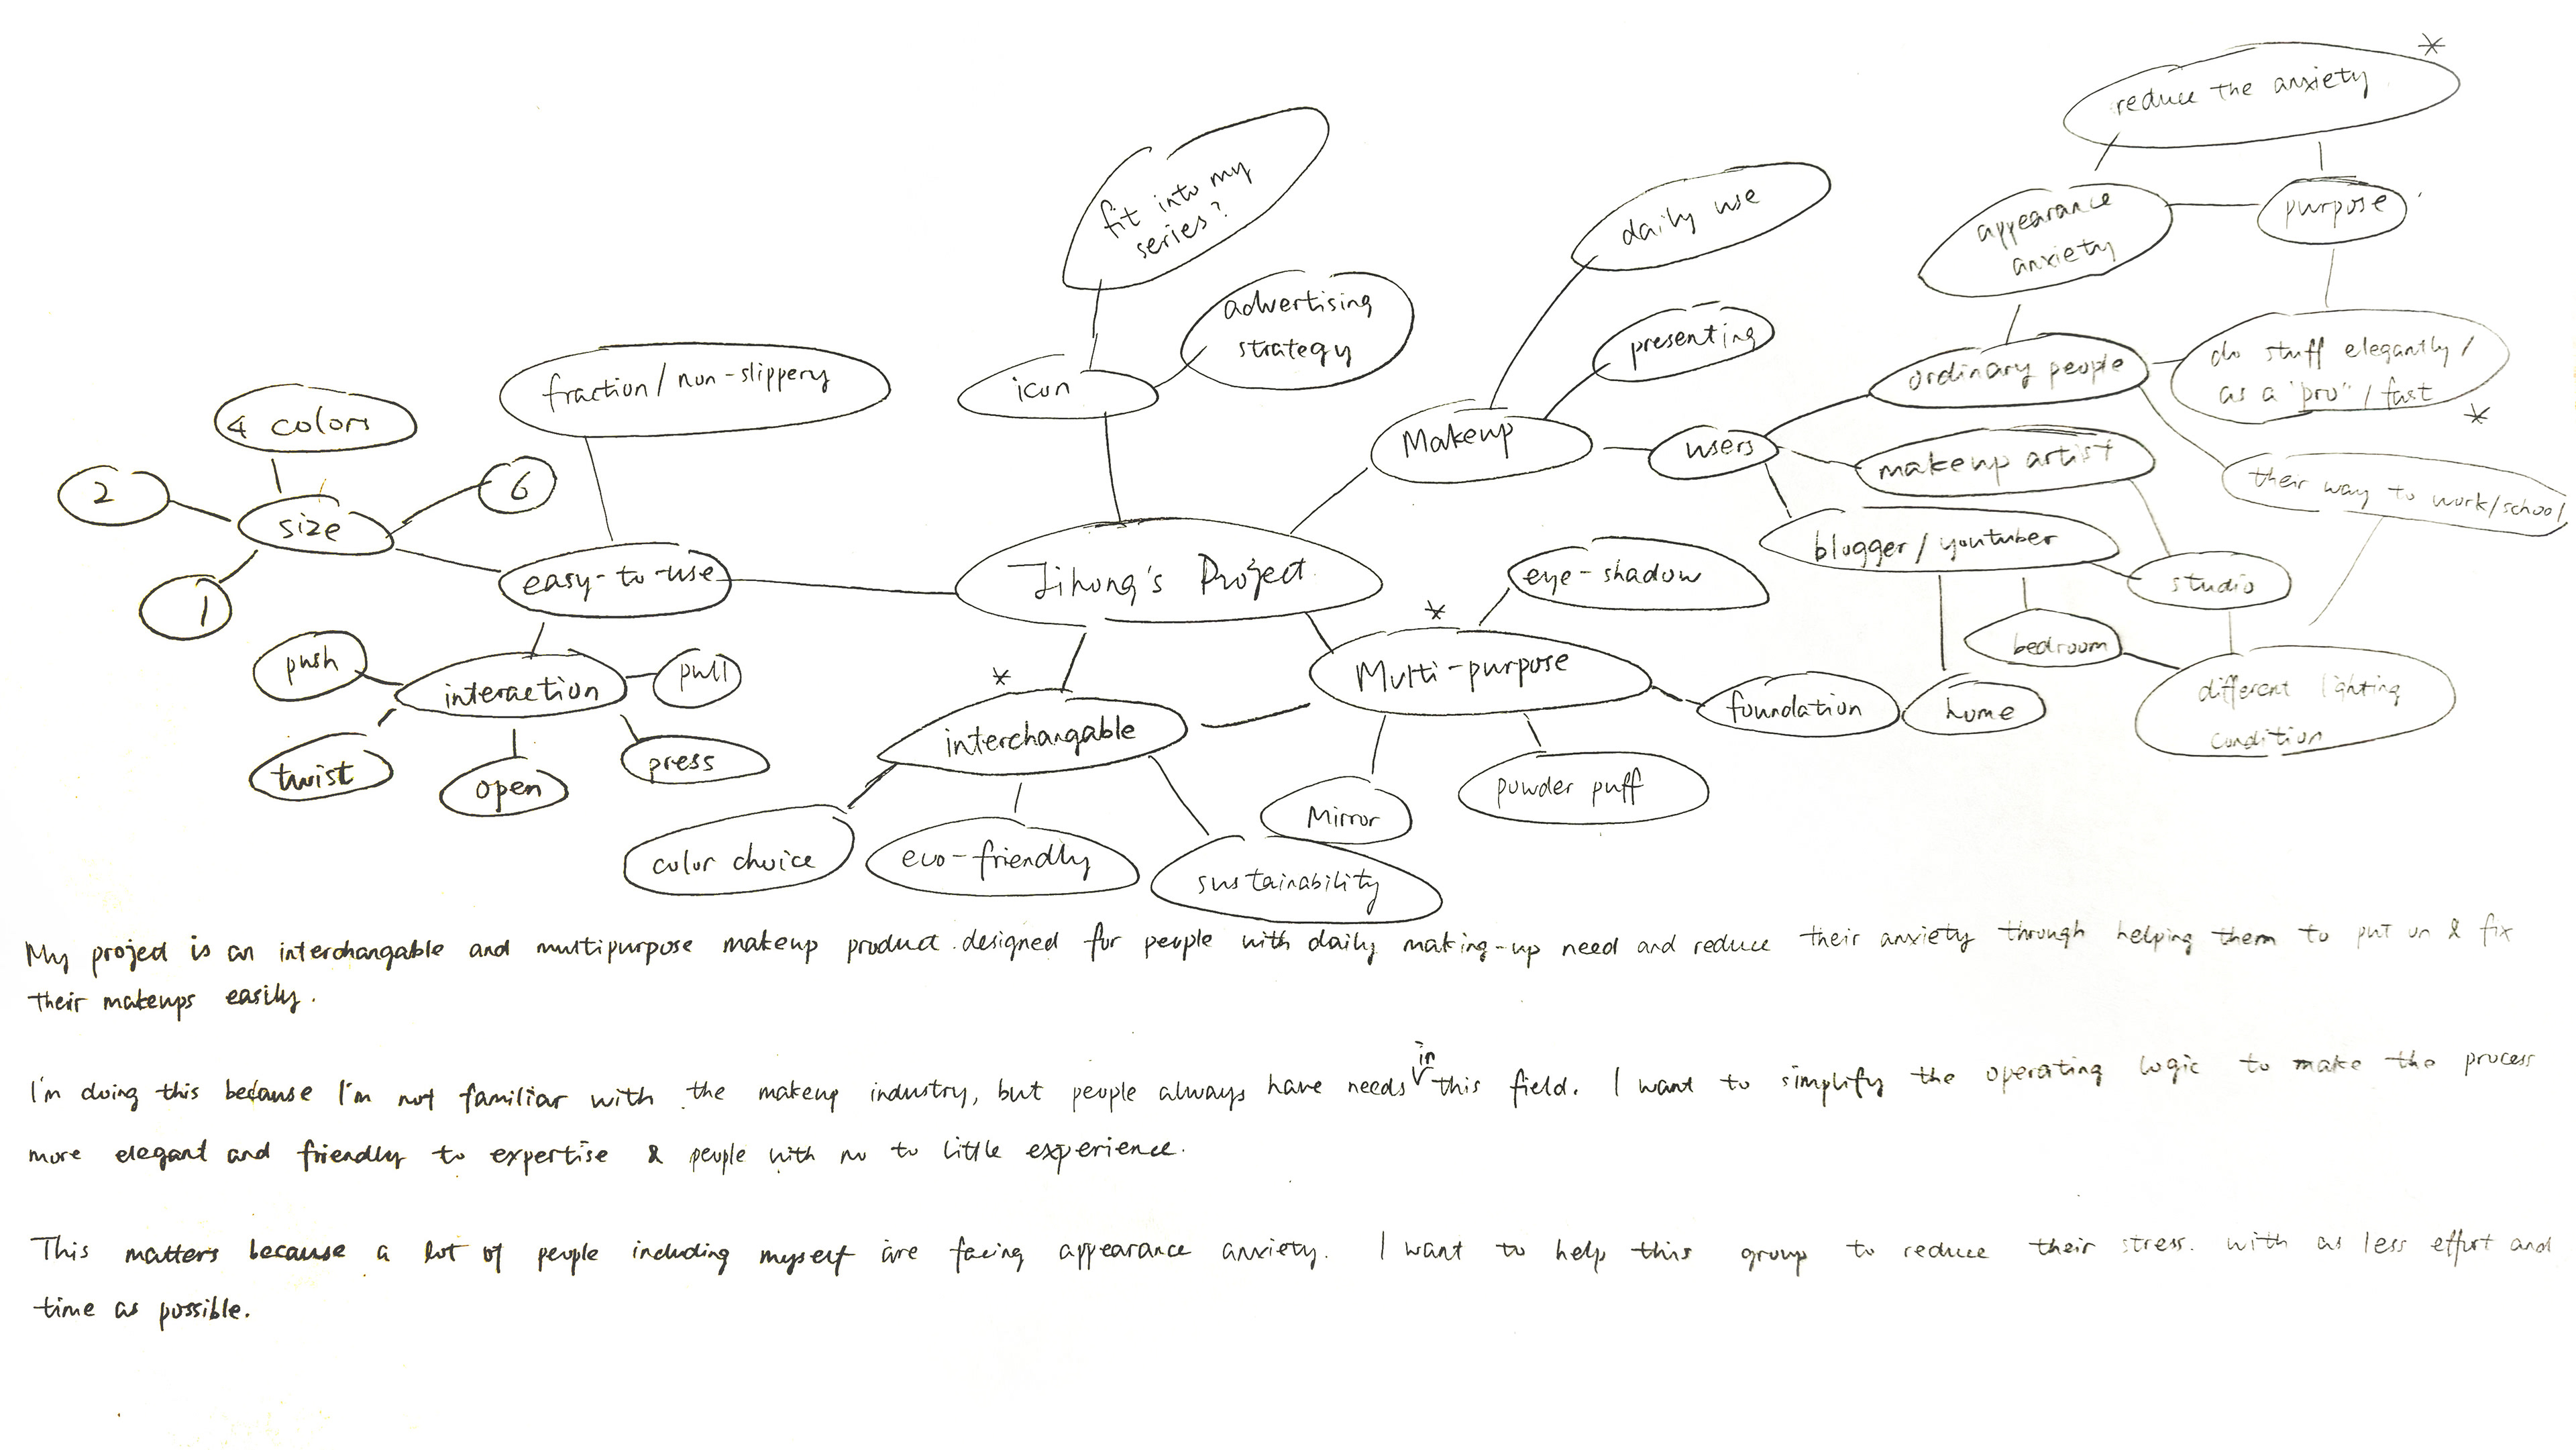 *
reduce the anxiety
fit into my
series?
daily use
appearance
anxiety
purpose
advertising
strategy
presenting
icon
fraction / non-slippery
4 colors
do stuff elegantly /
as a "pro" / fast
*
ordinary people
Makeup
users
makeup artist
their way to work/school
2
6
size
1
easy-to-use
Jihong's Project
eye-shadow
blogger / youtuber
studio
bedroom
*
Multi-purpose
push
pull
interaction
*
interchangable
foundation
home
different lighting
condition
twist
open
press
Mirror
powder puff
color choice
eco-friendly
sustainability
My project is an interchangable and multipurpose makeup product designed for people with daily making-up need and reduce their anxiety through helping them to put on & fix
their makeups easily.
I'm doing this because I'm not familiar with the makeup industry, but people always have needs in this field. I want to simplify the operating logic to make the process
more elegant and friendly to expertise & people with no to little experience.
This matters because a lot of people including myself are facing appearance anxiety. I want to help this group to reduce their stress. with as less effort and
time as possible.